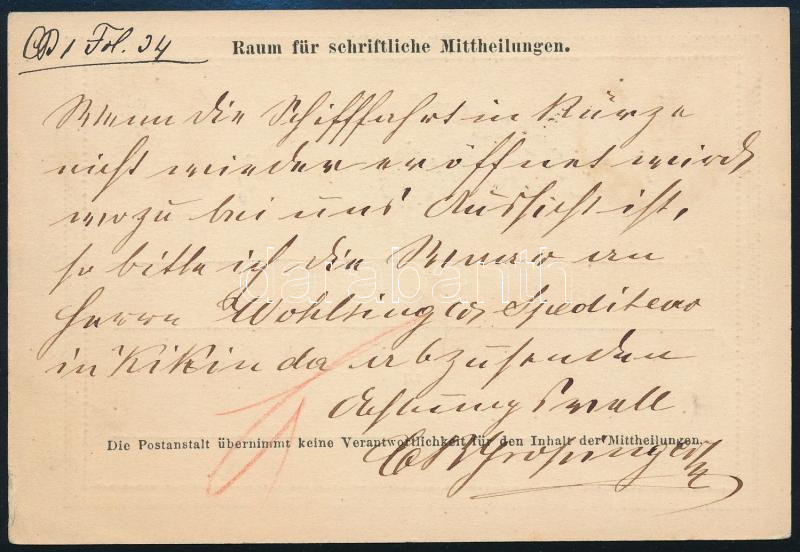 Fol. 34
Raum für schriftliche Mittheilungen.
Wenn die Schifffahrt in Kürze
nicht wieder eröffnet wird
wozu bei uns Aussicht ist,
so bitte ich die Waare an
Herrn Spediteur
in Kikinda abzusenden
Achtungsvoll
Die Postanstalt übernimmt keine Verantwortlichkeit für den Inhalt der Mittheilungen.
darabanth